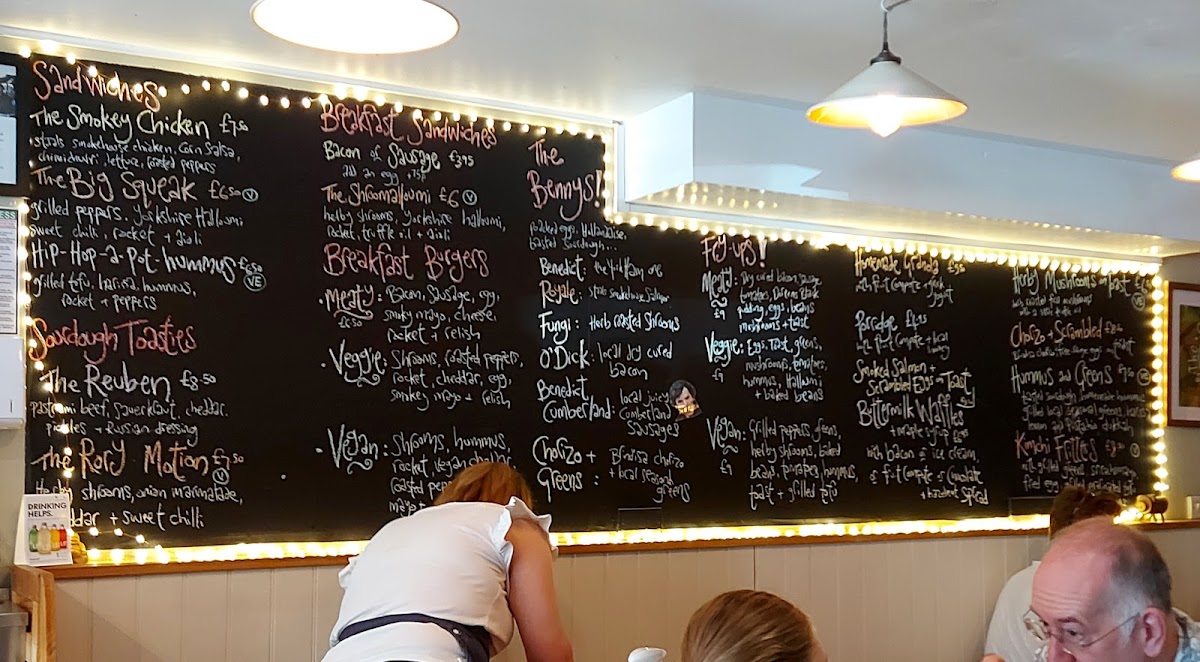 Sandwiches
The Smokey Chicken £7.50
strals smokehouse chicken, corn salsa,
chimichurri, lettuce, roasted peppers
The Big Squeak £6.50 V
grilled peppers, yorkshire Halloumi
sweet chilli, rocket + aioli
Hip-Hop-a-Pot-hummus £6.50 VE
grilled tofu, harissa, hummus,
rocket + peppers
Sourdough Toasties
The Reuben £8.50
pastrami beef, sauerkraut, cheddar,
pickles + Russian dressing
The Rory Motion £7.50 V
shrooms, onion marmalade,
+ sweet chilli
DRINKING
HELPS.
Breakfast Sandwiches
Bacon or Sausage £3.95
add an egg +75p
The Shroomalloumi £6 V
herby shrooms, yorkshire halloumi,
rocket, truffle oil + aioli
Breakfast Burgers
Meaty: Bacon, Sausage, egg,
£6.50 smoky mayo, cheese,
rocket + relish
Veggie: Shrooms, roasted peppers,
rocket, cheddar, egg,
smokey mayo + relish
Vegan: Shrooms, hummus
rocket, vegan
roasted
mayo +
The
Bennys!
poached eggs, Hollandaise,
toasted sourdough...
Benedict: the
Royale: strals smokehouse salmon
Fungi: Herb roasted Shrooms
O'Dick: local dry cured
bacon
Benedict Cumberland: local juicy
Cumberland
Sausages
Chorizo + Greens: Brindisa chorizo
+ local seasonal
greens
Fry-ups!
Meaty: Dry cured bacon, sausage
£9 tomatoes, black
pudding, eggs, beans
mushrooms + toast
Veggie: Eggs, toast, greens,
£9 mushrooms, tomatoes,
hummus, Halloumi
+ baked beans
Vegan: Grilled peppers, greens,
£9 herby shrooms, baked
beans, tomatoes, hummus,
toast + grilled tofu
Homemade Granola
with fruit compote + greek
yogurt
Porridge £4.95
with fruit compote + local
honey
Smoked Salmon +
Scrambled Eggs on Toast
Buttermilk Waffles
+ maple syrup
with bacon or ice cream,
or fruit compote or chocolate
+ hazelnut Spread
Herby Mushrooms on Toast
Chorizo + Scrambled
Hummus and Greens VE
toasted sourdough, homemade hummus,
grilled local seasonal greens,
lemon and
Kimchi Fritters V
with grilled greens
fried egg